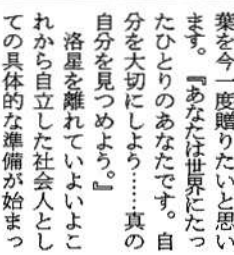 葉を今一度贈りたいと思い
ます。『あなたは世界にたっ
たひとりのあなたです。自
分を大切にしよう……真の
自分を見つめよう。』
洛星を離れていよいよこ
れから自立した社会人とし
ての具体的な準備が始まっ